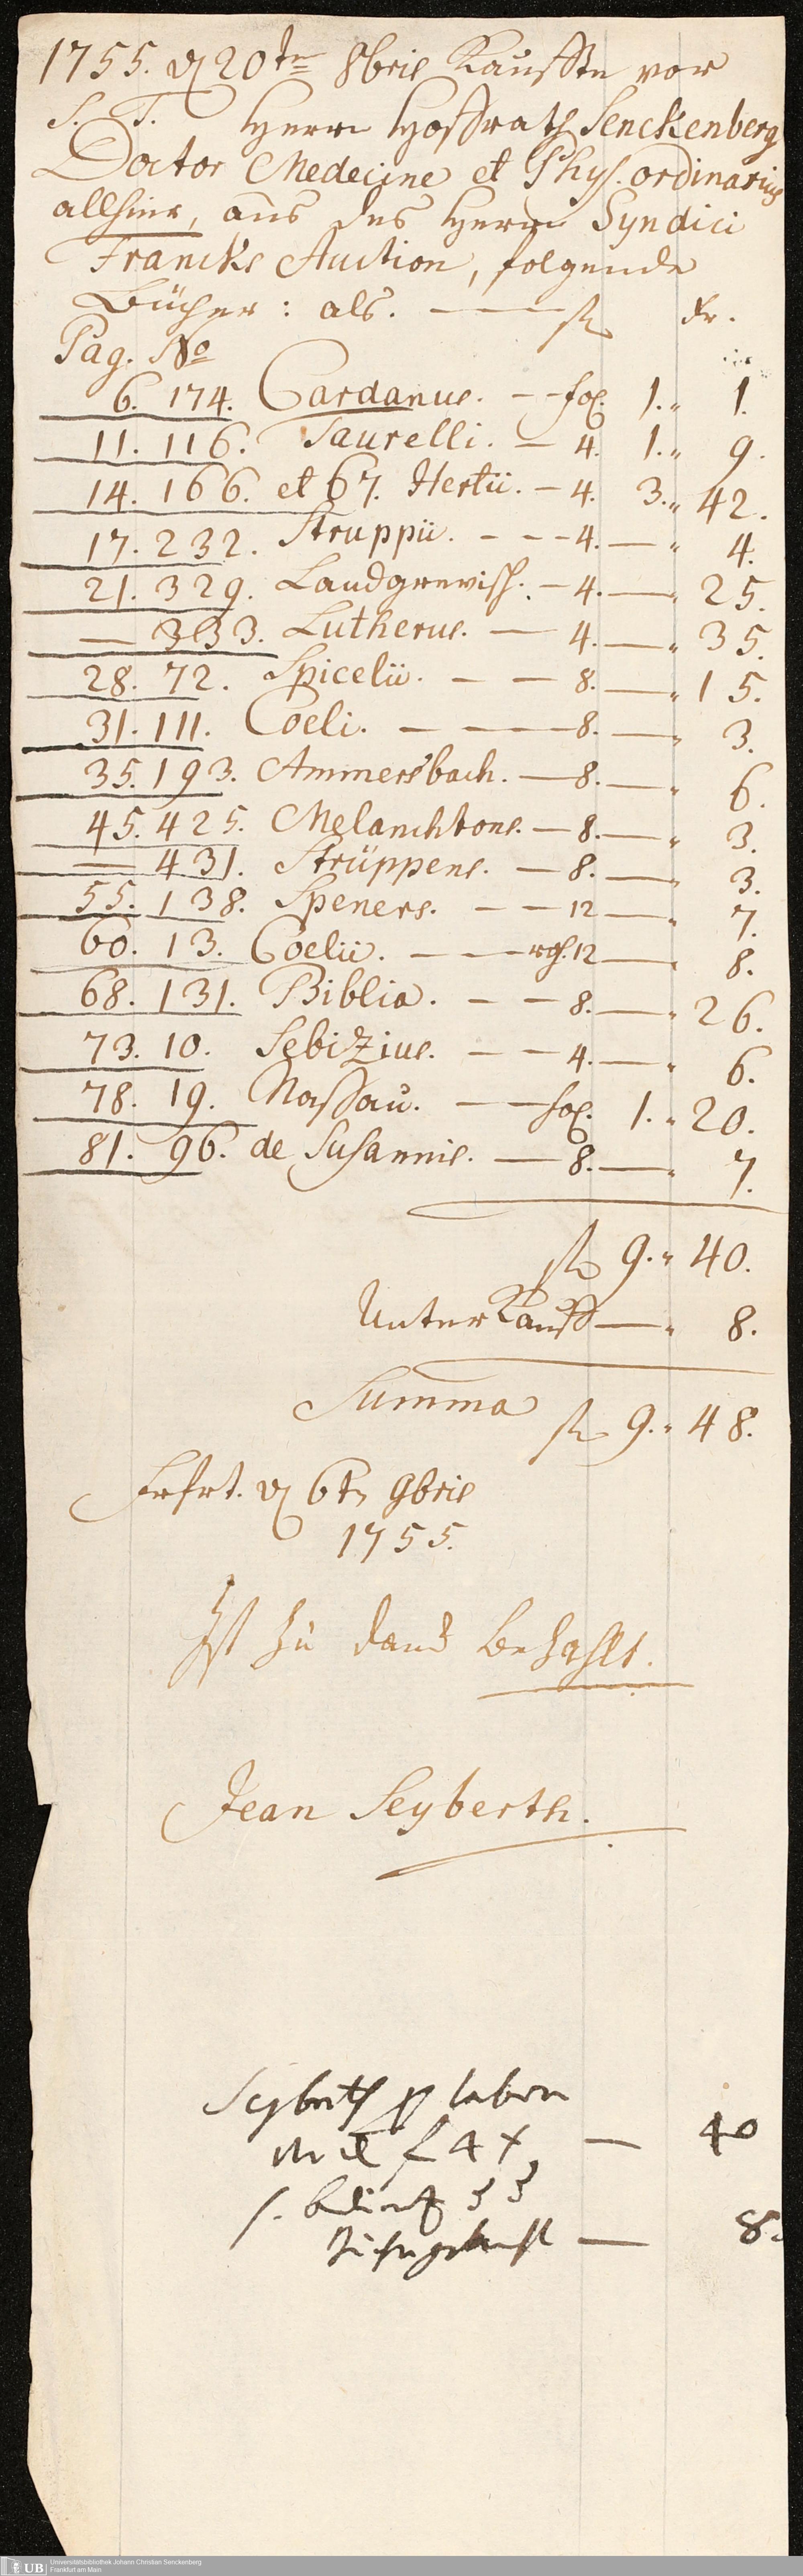 1755. d 20ten 8bris Kauffte vor
S. T. Herrn Hoffrath Senckenberg
Doctor Medecine et Phys. ordinarius
allhier, aus des Herrn Syndici
Francks Auction, folgende
Bücher: als. — fl Kr.
Pag. No
6. 174. Cardanus. - - fol. 1.„ 1.
11. 116. Taurelli. — 4. 1.„ 9.
14. 166. et 67. Hertii. — 4. 3.„ 42.
17. 232. Struppii. - - - 4. — „ 4.
21. 329. Landgrevisch. — 4. — „ 25.
— 333. Lutherus. — 4. — „ 35.
28. 72. Spicelii. — — 8. — „ 15.
31. 111. Coeli. — — 8. — „ 3.
35. 193. Ammersbach. — 8. — „ 6.
45. 425. Melanchtons. — 8. — „ 3.
— 431. Strüppens. — 8. — „ 3.
55. 138. Speners. - — 12 — „ 7.
60. 13. Coelii. — 12 — „ 8.
68. 131. Biblia. - — 8. — „ 26.
73. 10. Sebizius. - — 4. — „ 6.
78. 19. Nassau. — fol. 1.„ 20.
81. 96. de Susannis. — 8. — „ 7.
fl 9.„ 40.
Unterkauff — „ 8.
Summa fl 9.„ 48.
Frfrt. d 6tn 9bris
1755.
Ist zu danck bezahlt.
Jean Seyberth.
Seyberth
4 x — 40
— 8.
UB Universitätsbibliothek Johann Christian Senckenberg
Frankfurt am Main